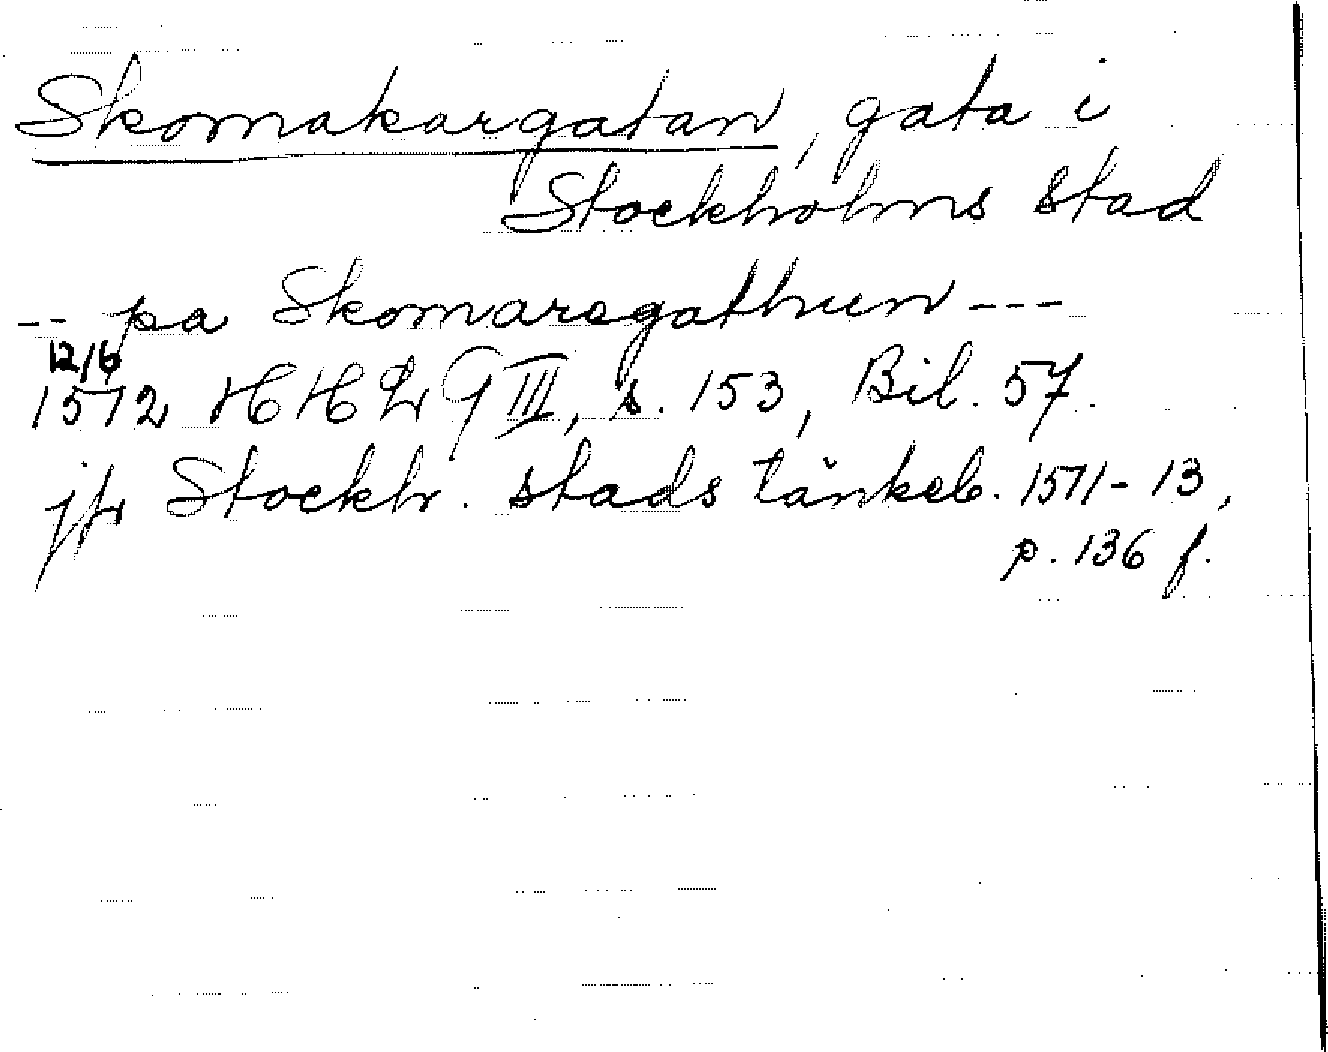 Skomakargatan, gata i
Stockholms stad
-- pa Skomaregathun ---
12/6
1572 HHL G III, s. 153, Bil. 57.
jfr Stockh. stads tänkeb. 1571-73,
p. 136 f.